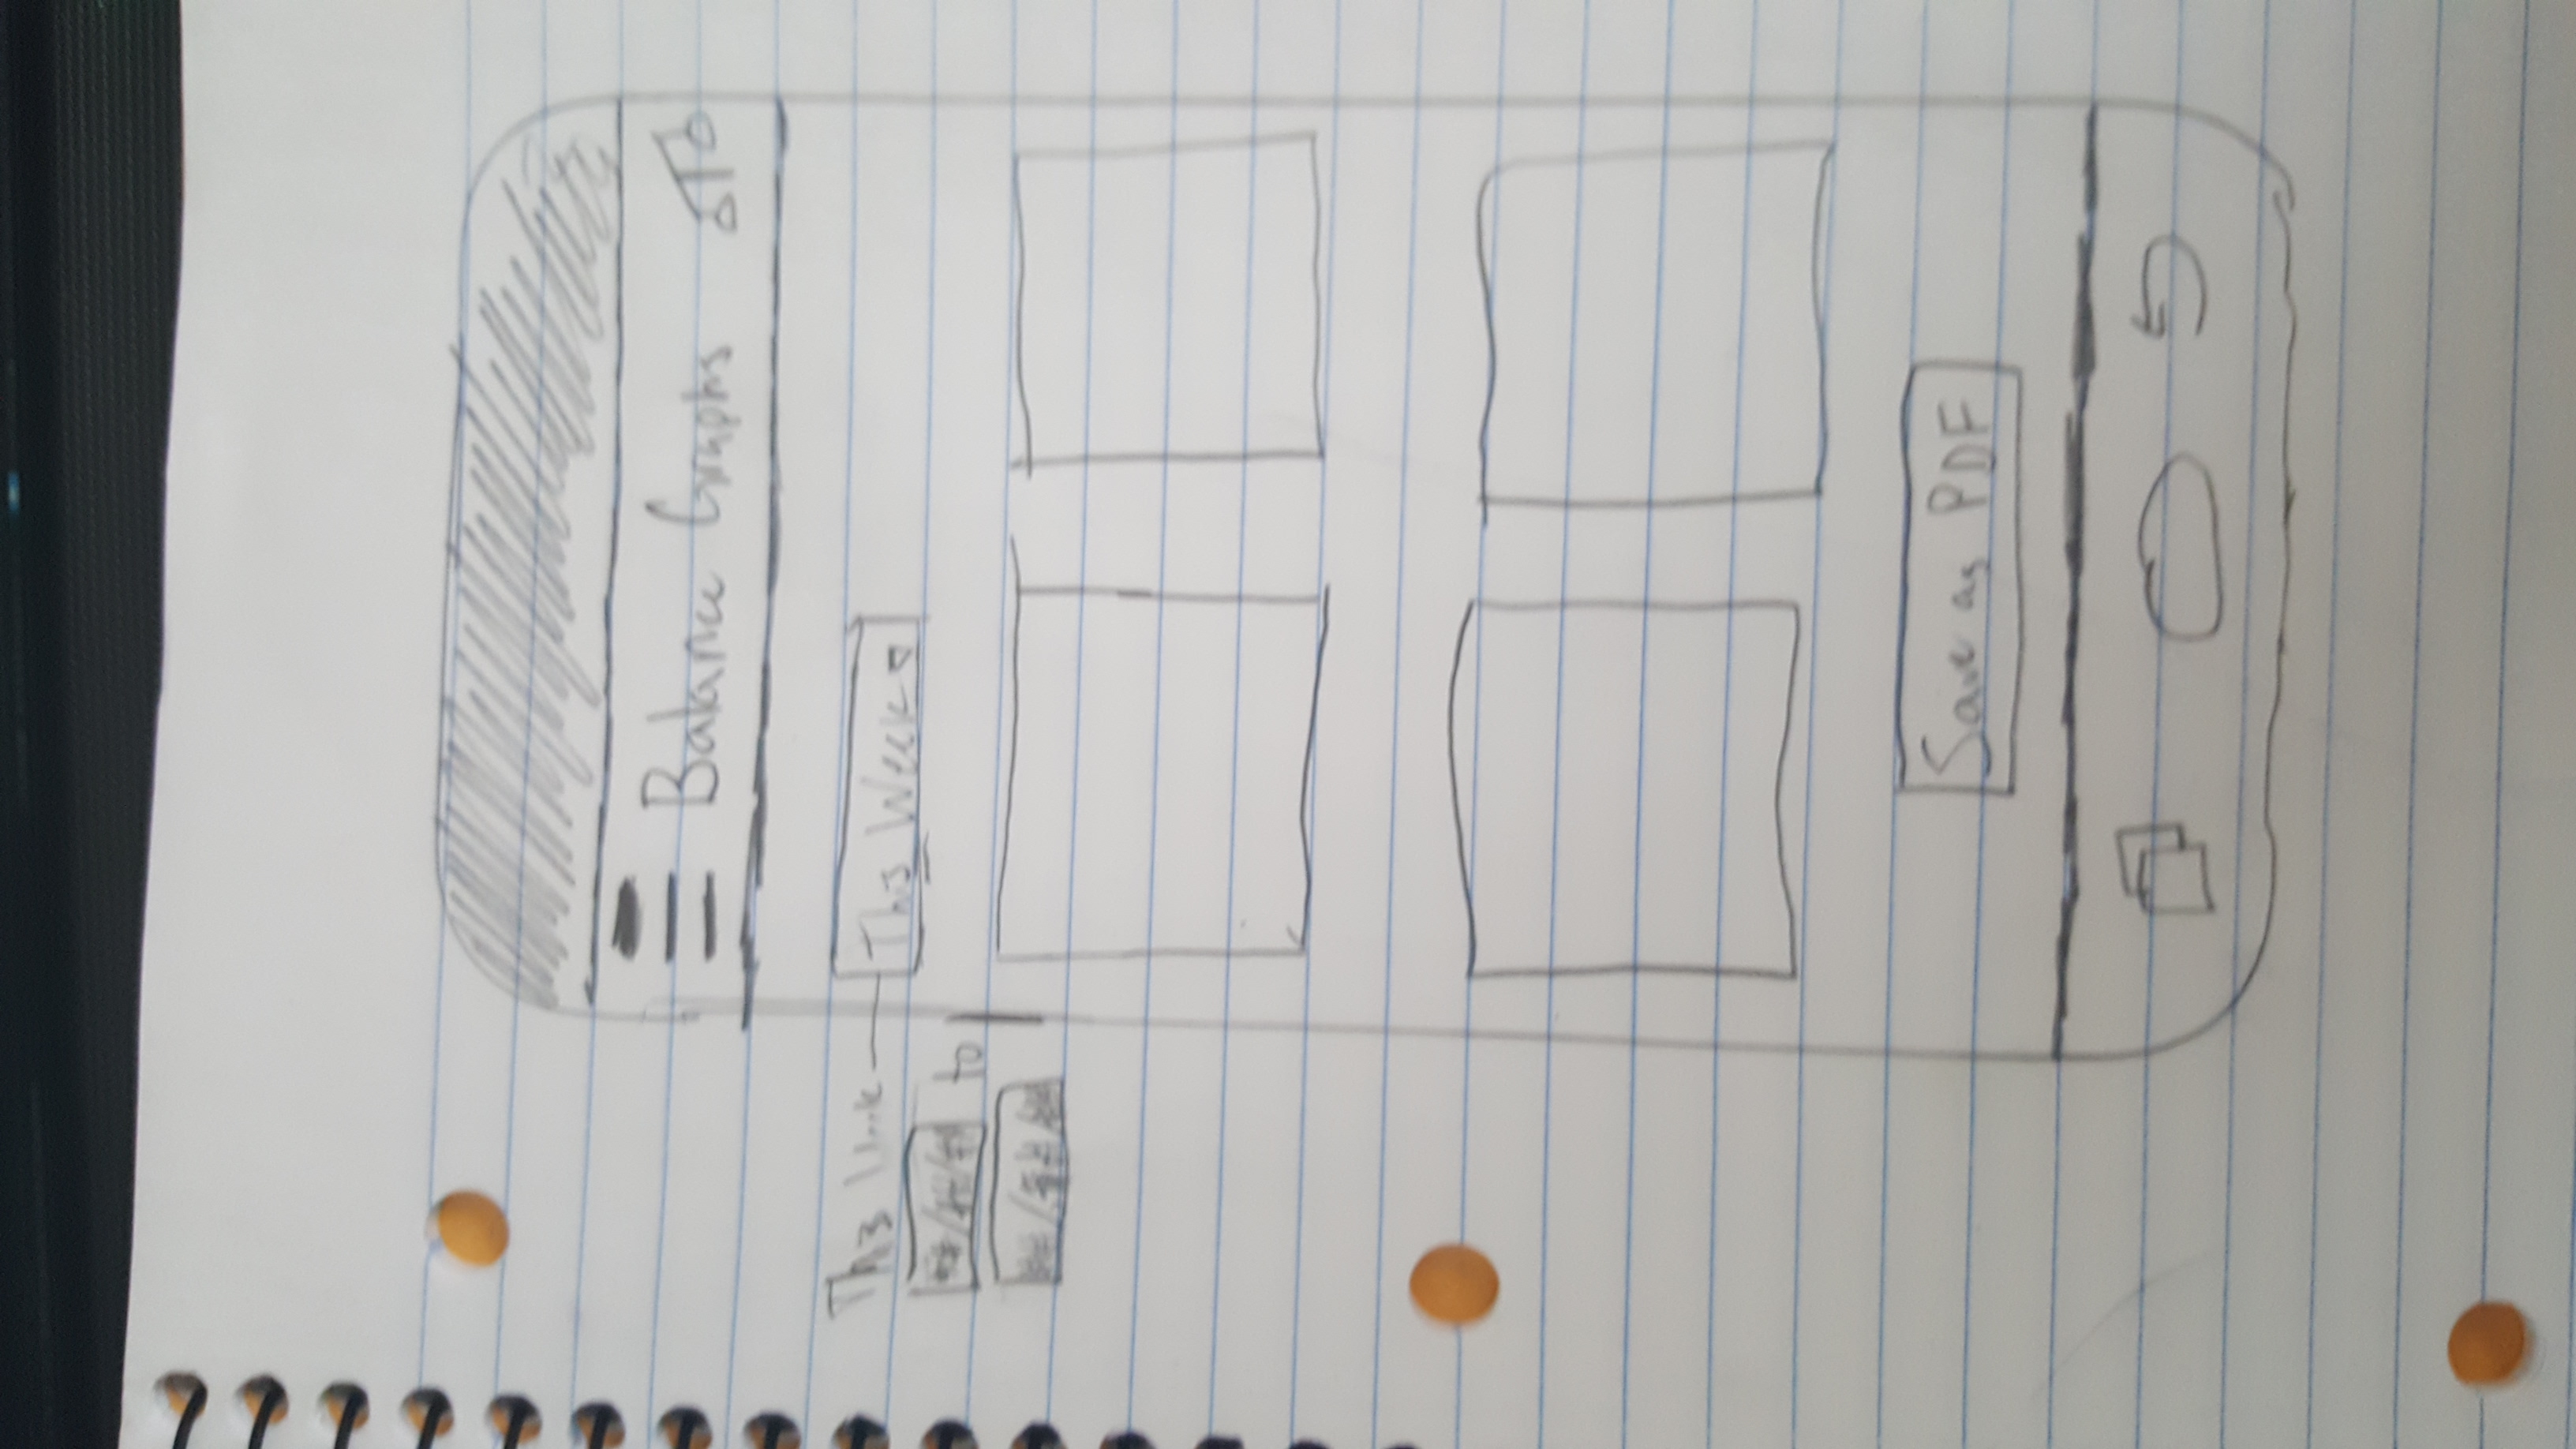 Balance Graphs
This Week
This Week
##/##/## to
##/##/##
Save as PDF